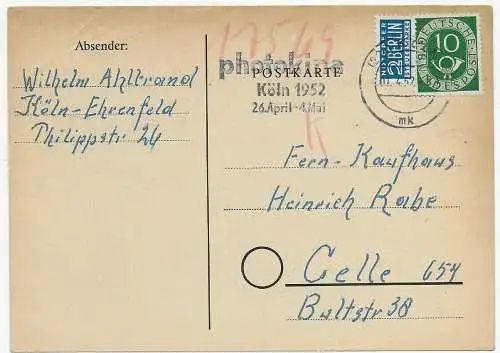 Absender:
Wilhelm Ahlbrand
Köln-Ehrenfeld
Philippstr 24
17549
photokina
POSTKARTE
Köln 1952
26.April-4.Mai
NOTOPFER
2 BERLIN
STEUERMARKE
DEUTSCHE
10
BUNDESPOST
mk
Fern-Kaufhaus
Heinrich Rabe
Celle 654
Bultstr 38